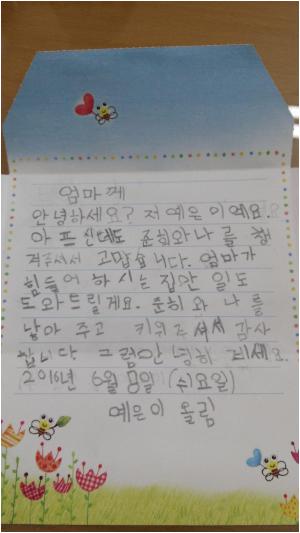 엄마께
안녕하세요? 저 예은이예요.
아프신데도 준희와 나를 챙
겨주셔서 고맙습니다. 엄마가
힘들어 하시는 집안 일도
도와드릴게요. 준희와 나를
낳아 주고 키워주셔서 감사
합니다 그럼 안녕히 계세요.
2016년 6월 8일 (수요일)
예은이 올림